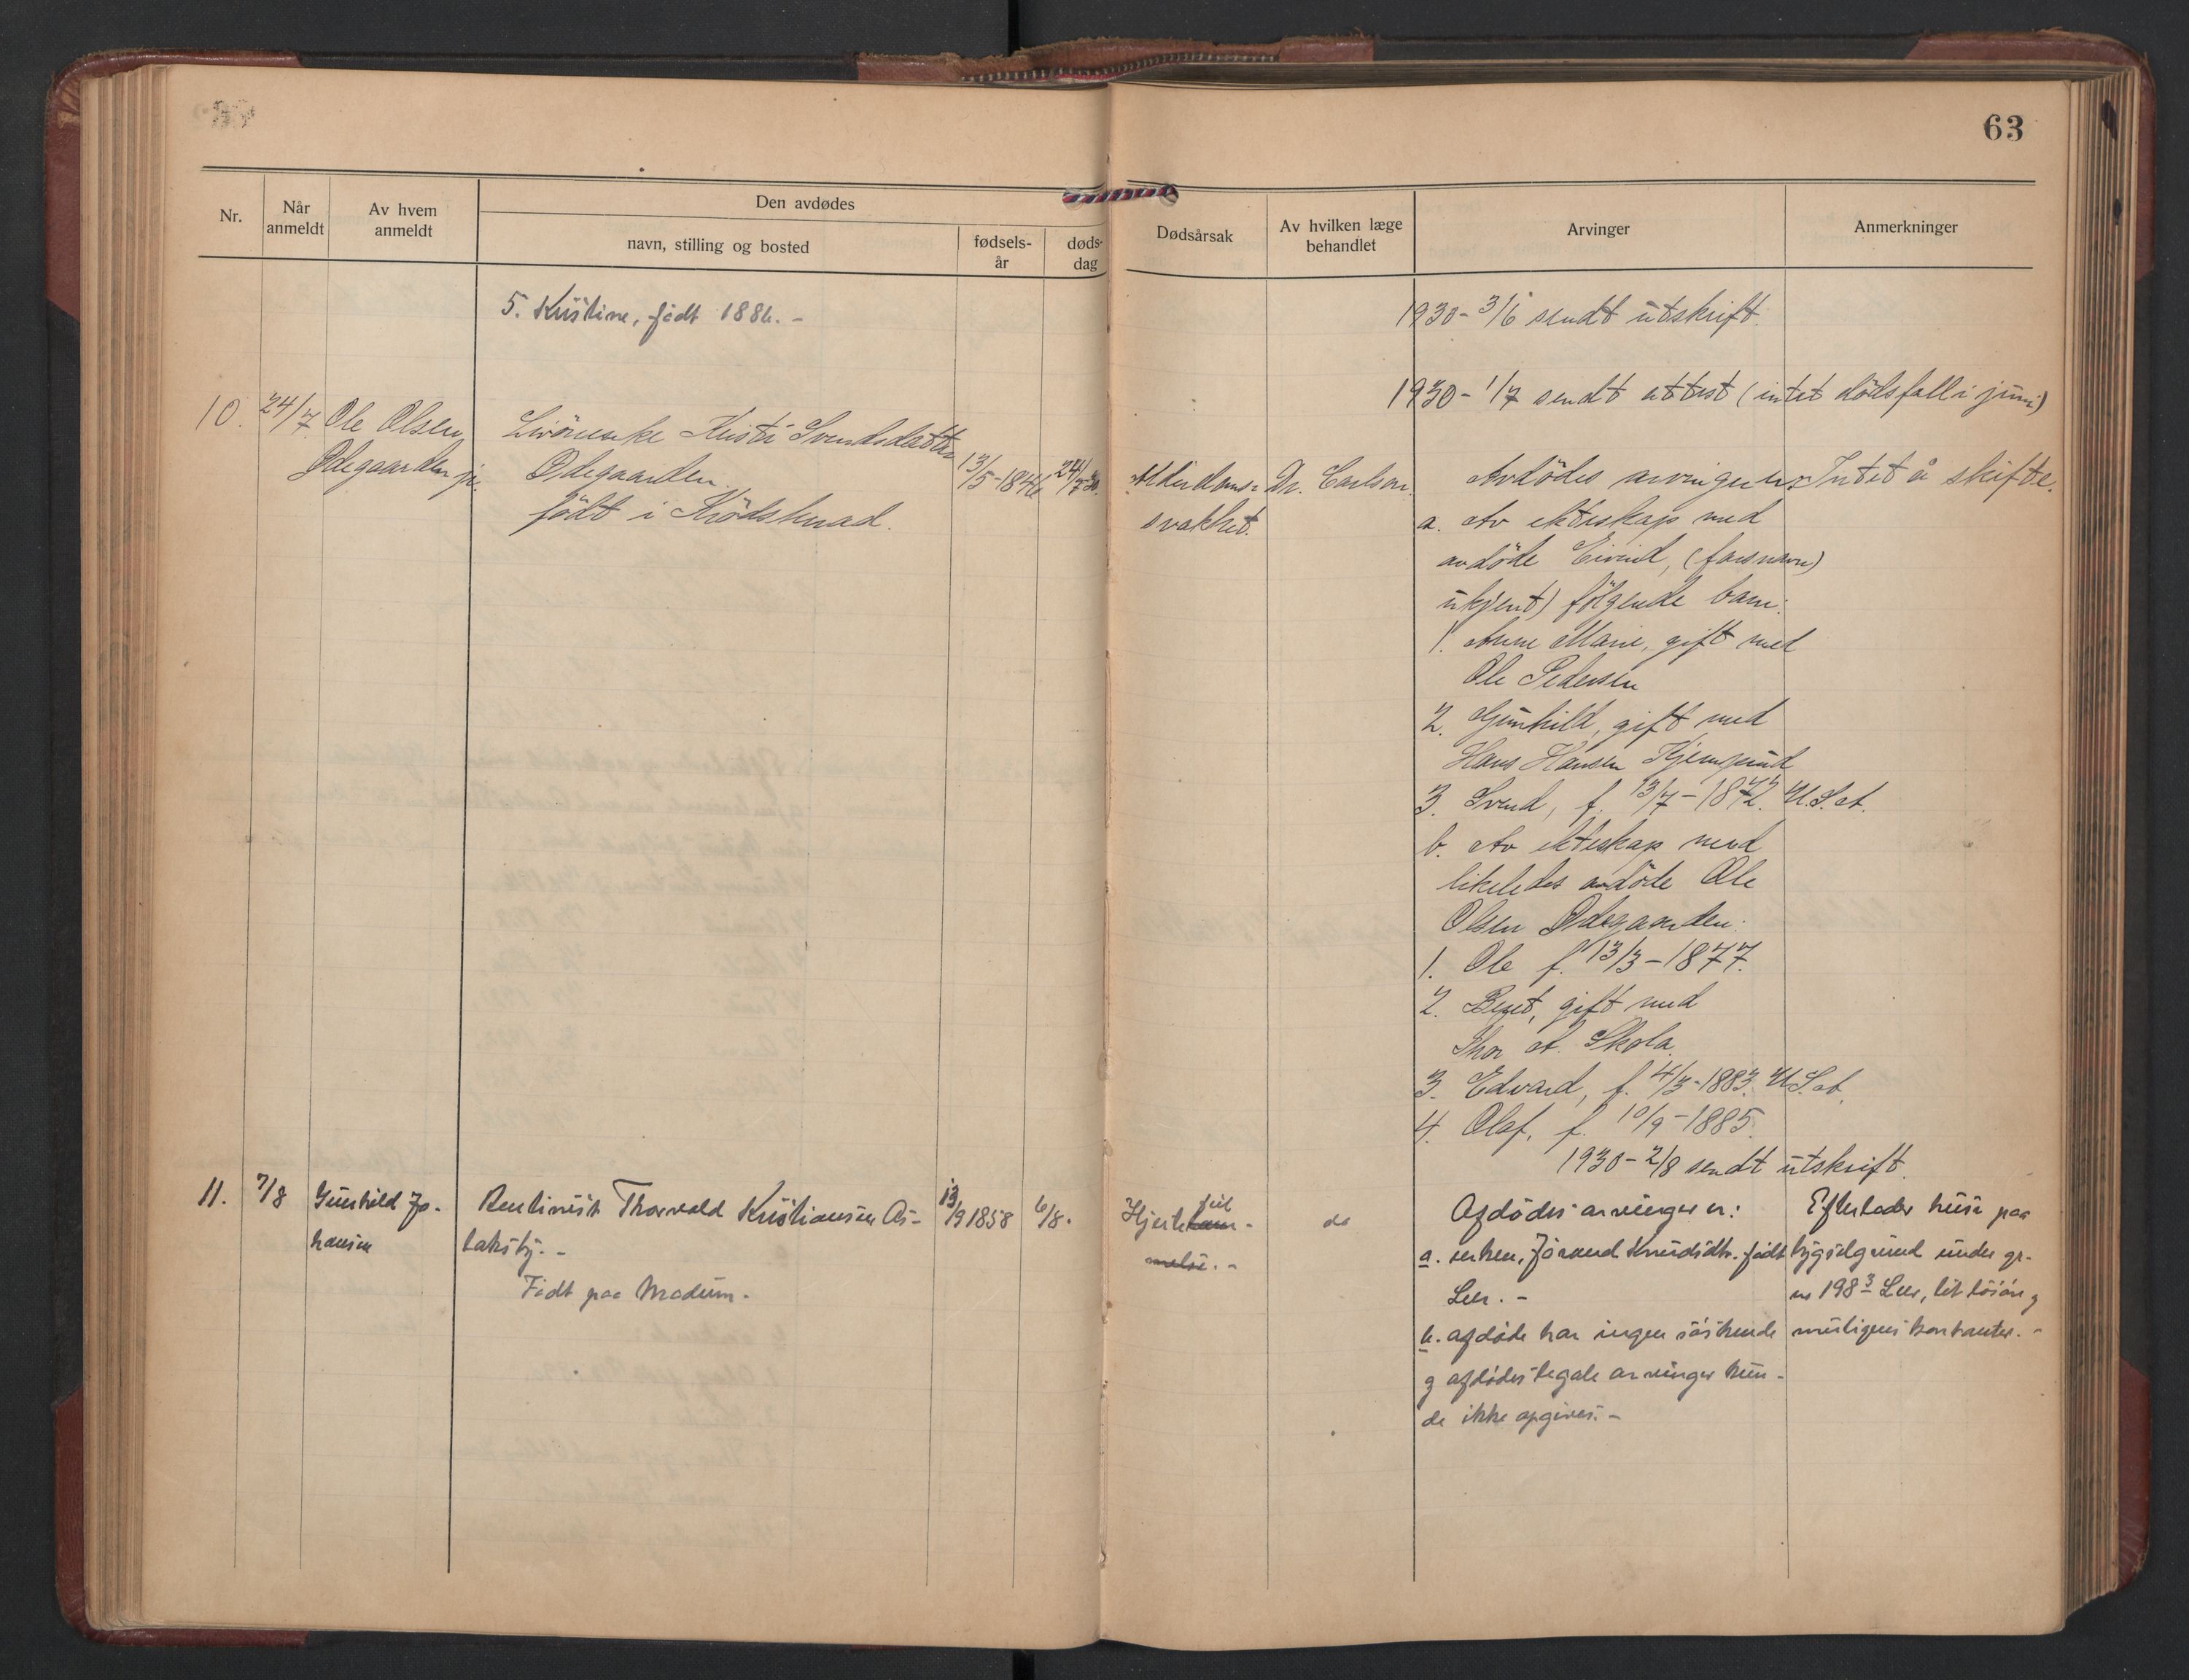 63
Nr.
Når anmeldt
Av hvem anmeldt
Den avdødes
navn, stilling og bosted
fødsels-år
døds-dag
Dødsårsak
Av hvilken læge behandlet
Arvinger
Anmerkninger
5. Kristine, født 1886. -
1930 - 3/6 sendt utskrift.
1930 - 1/7 sendt attest (intet dödsfall i juni)
10. 24/7. Ole Olsen
Ødegaarden jr.
Livörenke Kristi Svendsdatter
Ødegaarden.
född i Krödsherad.
13/5-1846
24/7-30.
Alderdoms-
svakhet.
Dr. Carlson.
Avdödes arvinger er:
a. Av ekteskap med
avdöde Eivind, (farsnavn)
ukjent) fölgende barn:
1. Anne Marie, gift med
Ole Pedersen
2. Gunhild, gift med
Hans Hansen Kjemgrund
3. Svend, f. 13/7-1872. U.S.A.
b. Av ekteskap med
likeledes avdöde Ole
Olsen Ødegaarden:
1. Ole f. 13/3-1877.
2. Berit, gift med
Thor A. Skola.
3. Edvard, f. 4/3-1883. U.S.A.
4. Olaf, f. 10/9-1885.
1930 - 2/8 sendt utskrift.
Intet å skifte.
11. 7/8 Gunhild Jo-
hansen
Rentinist Thorvald Kristiansen As-
laksby. -
Født paa Modum. -
13/9 1858
6/8.
Hjerte feil
do
Afdødes arvinger er:
a. enken, Jørand Knudsdtr. født
Leer. -
b. afdøde har ingen søskende
og afdødes legale arvinger kun-
de ikke opgives. -
Efterlader huse paa
bygselgrund under gr.
nr 198 3 Leer, lit løsøre og
muligens kontanter. -